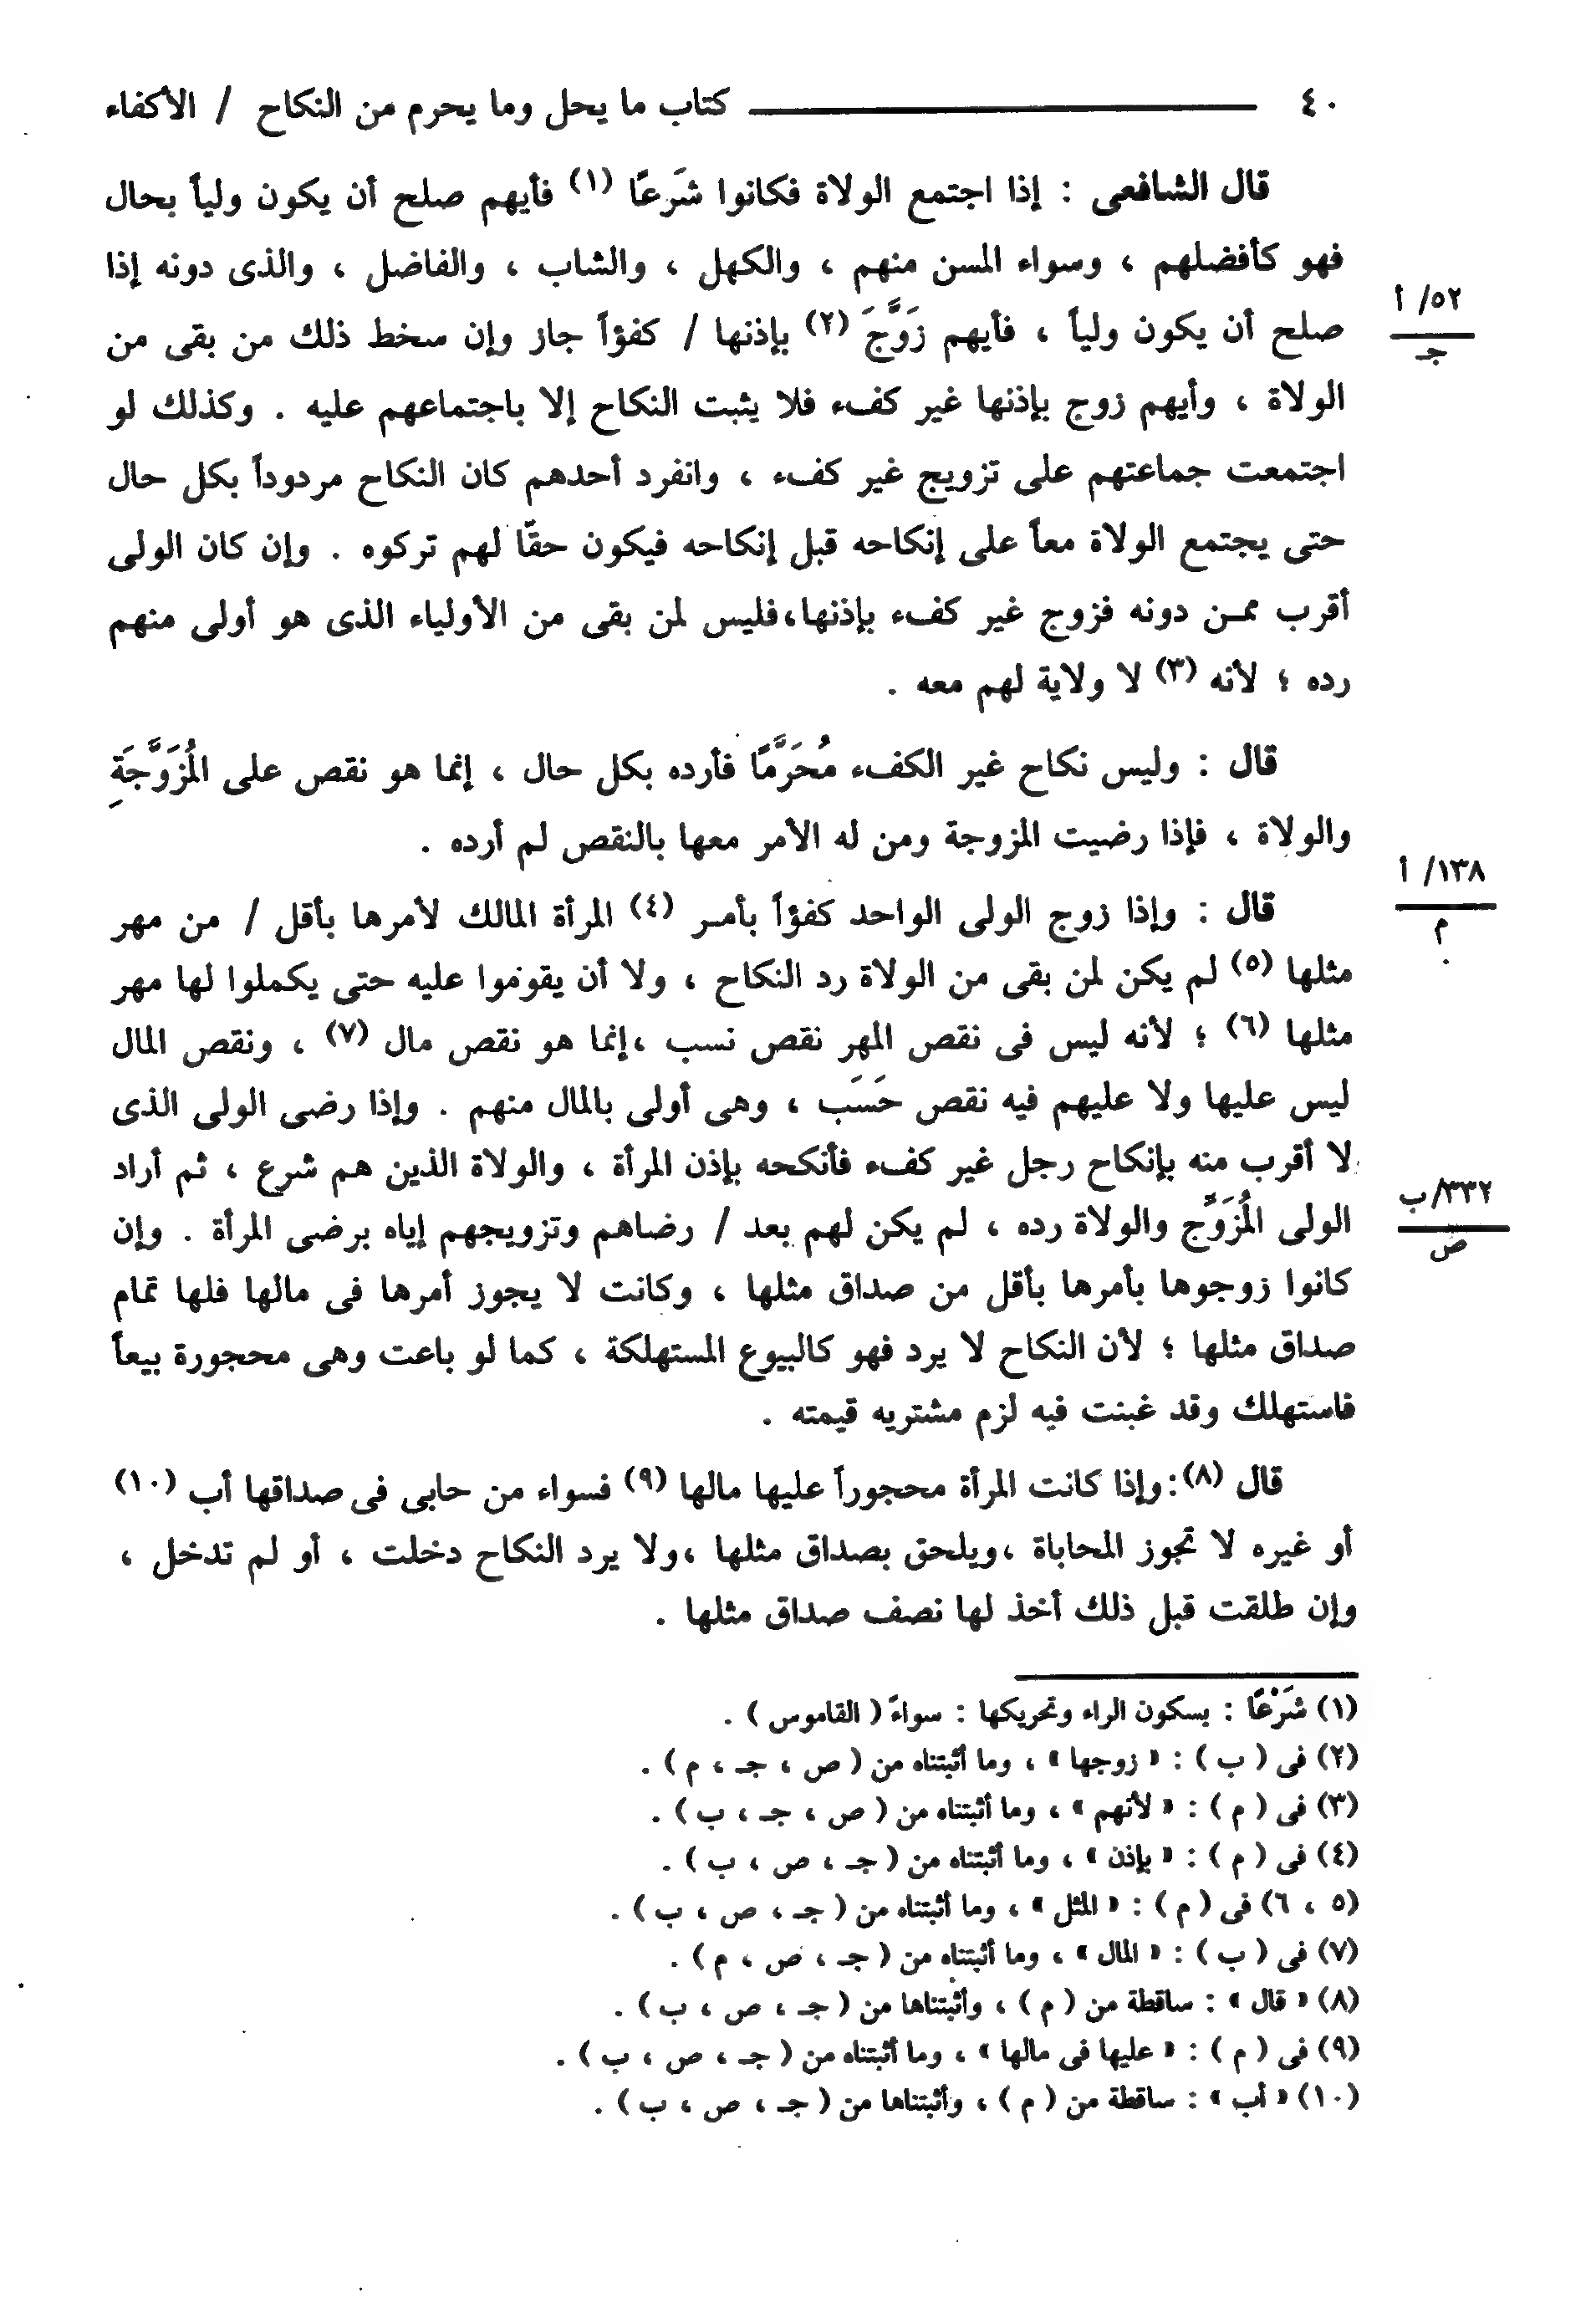 ٤٠ كتاب ما يحل وما يحرم من النكاح / الأكفاء
قال الشافعى : إذا اجتمع الولاة فكانوا شَرعًا (١) فأيهم صلح أن يكون ولياً بحال
فهو كأفضلهم ، وسواء المسن منهم ، والكهل ، والشاب ، والفاضل ، والذى دونه إذا
٥٢/ أ
جـ
صلح أن يكون ولياً ، فأيهم زَوَّجَ (٢) بإذنها / كفؤاً جاز وإن سخط ذلك من بقى من
الولاة ، وأيهم زوج بإذنها غير كفء فلا يثبت النكاح إلا باجتماعهم عليه . وكذلك لو
اجتمعت جماعتهم على تزويج غير كفء ، وانفرد أحدهم كان النكاح مردوداً بكل حال
حتى يجتمع الولاة معاً على إنكاحه قبل إنكاحه فيكون حقّا لهم تركوه . وإن كان الولى
أقرب ممـن دونه فزوج غير كفء بإذنها،فليس لمن بقى من الأولياء الذى هو أولى منهم
رده ؛ لأنه (٣) لا ولاية لهم معه .
قال : وليس نكاح غير الكفء مُحَرَّمًا فأرده بكل حال ، إنما هو نقص على المُزَوَّجَةِ
والولاة ، فإذا رضيت المزوجة ومن له الأمر معها بالنقص لم أرده .
١٣٨/ أ
م
قال : وإذا زوج الولى الواحد كفؤاً بأمـر (٤) المرأة المالك لأمرها بأقل / من مهر
مثلها (٥) لم يكن لمن بقى من الولاة رد النكاح ، ولا أن يقوموا عليه حتى يكملوا لها مهر
مثلها (٦) ؛ لأنه ليس فى نقص المهر نقص نسب ،إنما هو نقص مال (٧) ، ونقص المال
ليس عليها ولا عليهم فيه نقص حَسَب ، وهى أولى بالمال منهم . وإذا رضى الولى الذى
لا أقرب منه بإنكاح رجل غير كفء فأنكحه بإذن المرأة ، والولاة الذين هم شرع ، ثم أراد
٣٣٢/ب
ص
الولى المُزَوِّج والولاة رده ، لم يكن لهم بعد / رضاهم وتزويجهم إياه برضى المرأة . وإن
كانوا زوجوها بأمرها بأقل من صداق مثلها ، وكانت لا يجوز أمرها فى مالها فلها تمام
صداق مثلها ؛ لأن النكاح لا يرد فهو كالبيوع المستهلكة ، كما لو باعت وهى محجورة بيعاً
فاستهلك وقد غبنت فيه لزم مشتريه قيمته .
قال (٨):وإذا كانت المرأة محجوراً عليها مالها (٩) فسواء من حابى فى صداقها أب (١٠)
أو غيره لا تجوز المحاباة ،ويلحق بصداق مثلها ،ولا يرد النكاح دخلت ، أو لم تدخل ،
وإن طلقت قبل ذلك أخذ لها نصف صداق مثلها .
(١) شَرْعًا : بسكون الراء وتحريكها : سواءً ( القاموس ) .
(٢) فى ( ب ) : « زوجها » ، وما أثبتناه من ( ص ، جـ ، م ) .
(٣) فى ( م ) : « لأنهم » ، وما أثبتناه من ( ص ، جـ ، ب ) .
(٤) فى ( م ) : « بإذن » ، وما أثبتناه من ( جـ ، ص ، ب ) .
(٥ ، ٦) فى ( م ) : « المثل » ، وما أثبتناه من ( جـ ، ص ، ب ) .
(٧) فى ( ب ) : « المال » ، وما أثبتناه من ( جـ ، ص ، م ) .
(٨) « قال » : ساقطة من ( م ) ، وأثبتناها من ( جـ ، ص ، ب ) .
(٩) فى ( م ) : « عليها فى مالها » ، وما أثبتناه من ( جـ ، ص ، ب ) .
(١٠) « أب » : ساقطة من ( م ) ، وأثبتناها من ( جـ ، ص ، ب ) .